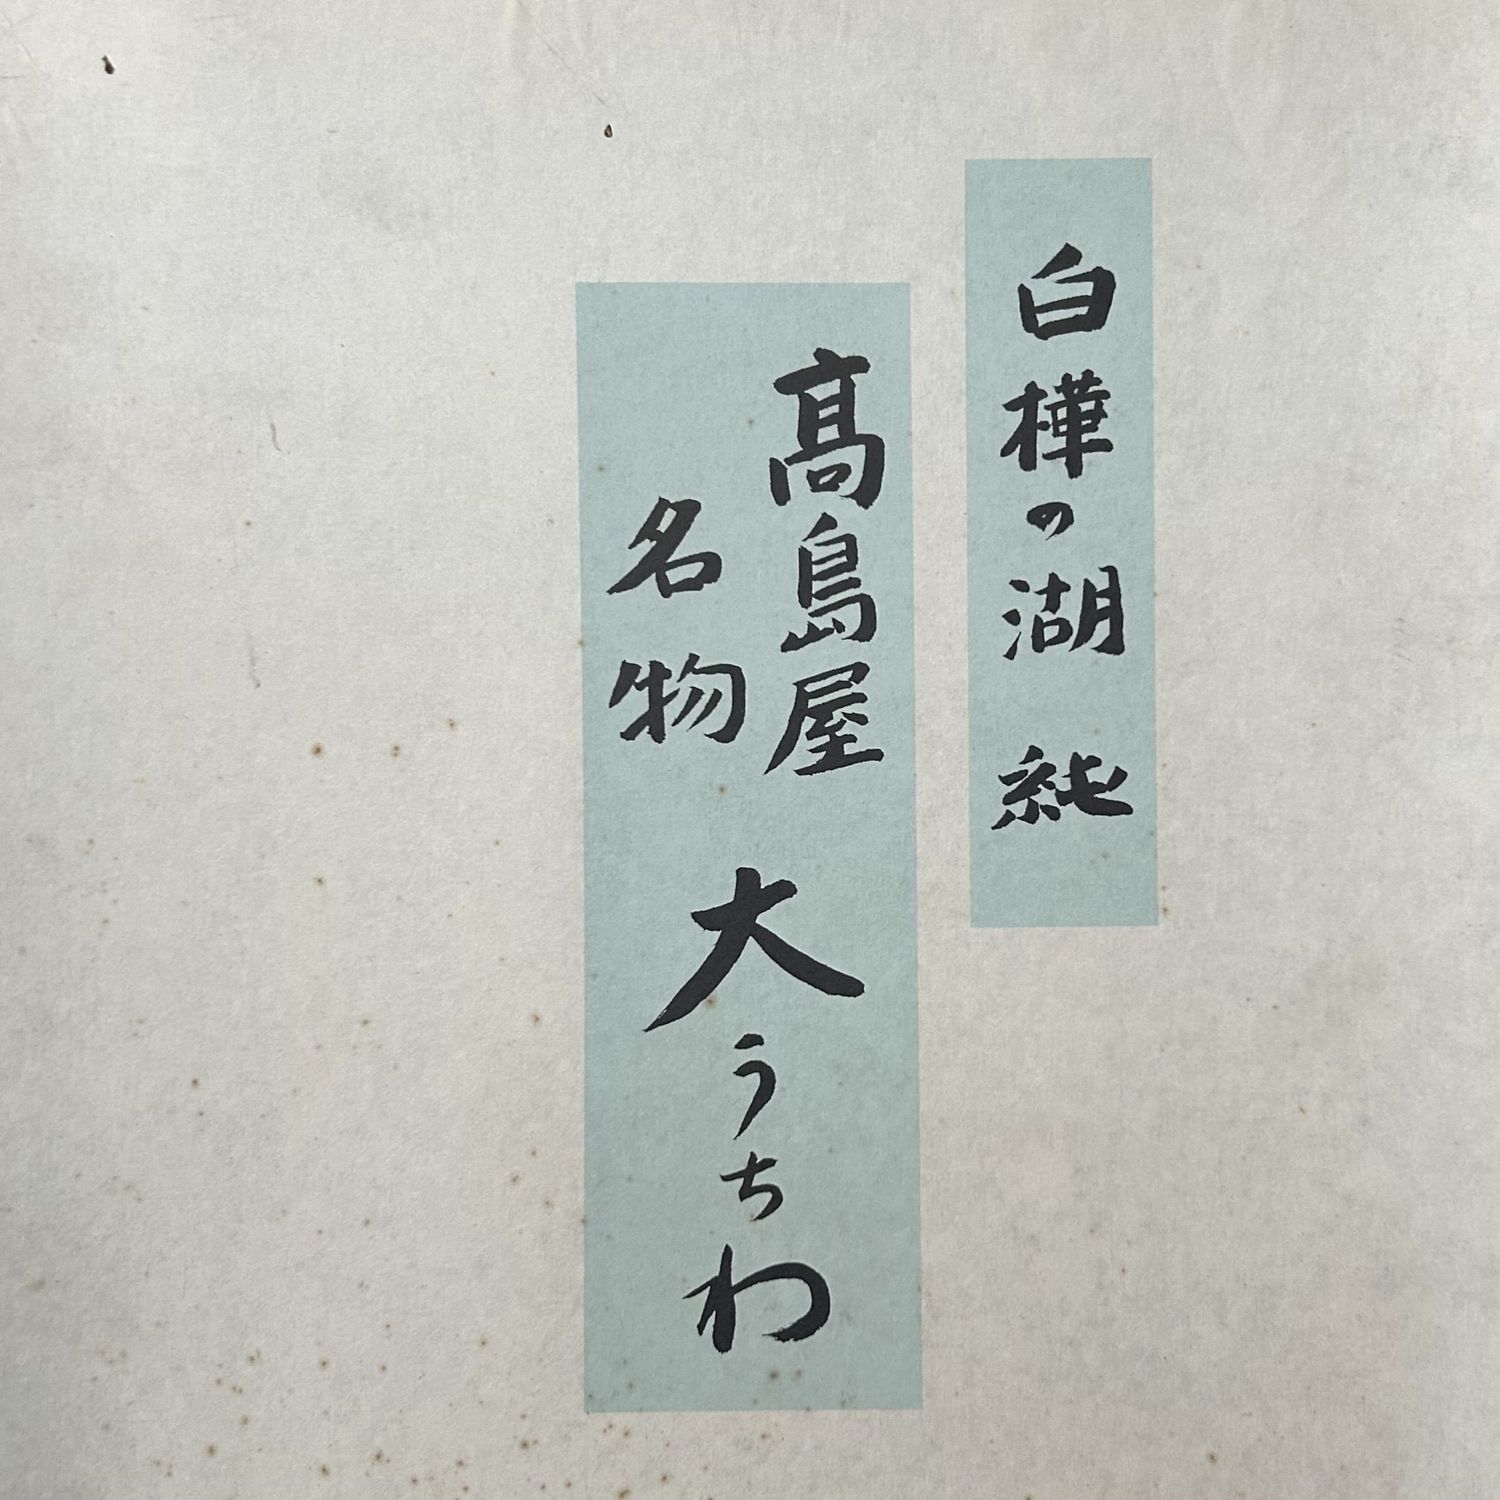 白樺の湖 純
髙島屋
名物
大うちわ